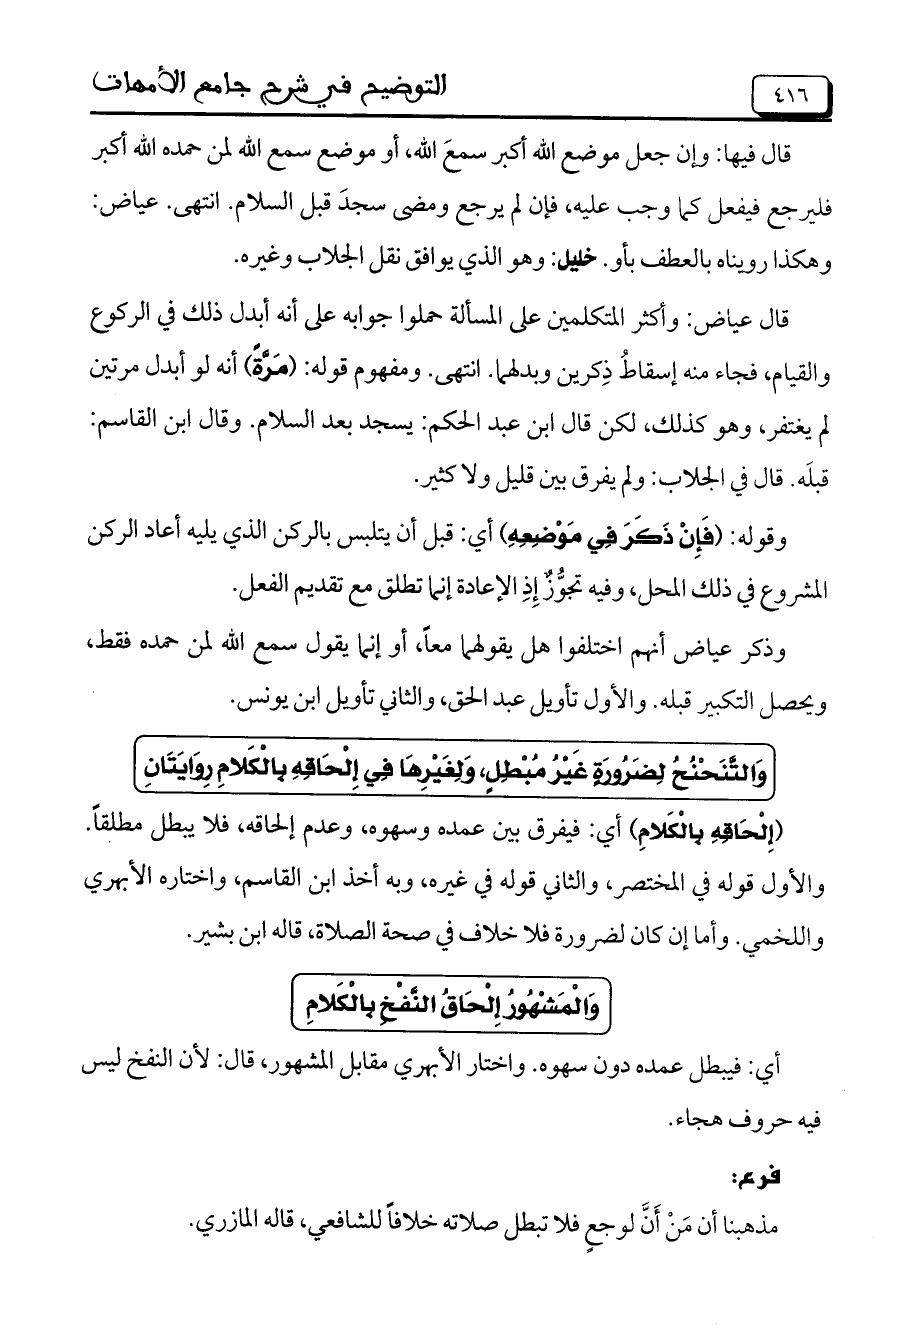 ٤١٦
التوضيح في شرح جامع الأمهات
قال فيها: وإن جعل موضع الله أكبر سمعَ الله، أو موضع سمع الله لمن حمده الله أكبر
فليرجع فيفعل كما وجب عليه، فإن لم يرجع ومضى سجدَ قبل السلام. انتهى. عياض:
وهكذا رويناه بالعطف بأو. خليل: وهو الذي يوافق نقل الجلاب وغيره.
قال عياض: وأكثر المتكلمين على المسألة حملوا جوابه على أنه أبدل ذلك في الركوع
والقيام، فجاء منه إسقاطُ ذِكرين وبدلهما. انتهى. ومفهوم قوله: (مَرَّةً) أنه لو أبدل مرتين
لم يغتفر، وهو كذلك، لكن قال ابن عبد الحكم: يسجد بعد السلام. وقال ابن القاسم:
قبلَه. قال في الجلاب: ولم يفرق بين قليل ولا كثير.
وقوله: (فَإِنْ ذَكَرَ فِي مَوْضِعِهِ) أي: قبل أن يتلبس بالركن الذي يليه أعاد الركن
المشروع في ذلك المحل، وفيه تجوُّزٌ إِذِ الإعادة إنما تطلق مع تقديم الفعل.
وذكر عياض أنهم اختلفوا هل يقولهما معاً، أو إنما يقول سمع الله لمن حمده فقط،
ويحصل التكبير قبله. والأول تأويل عبد الحق، والثاني تأويل ابن يونس.
وَالتَّنَحْنُحُ لِضَرُورَةٍ غَيْرُ مُبْطِلٍ، وَلِغَيْرِهَا فِي إِلْحَاقِهِ بِالْكَلامِ رِوَايَتَانِ
(إِلْحَاقِهِ بِالْكَلامِ) أي: فيفرق بين عمده وسهوه، وعدم إلحاقه، فلا يبطل مطلقاً.
والأول قوله في المختصر، والثاني قوله في غيره، وبه أخذ ابن القاسم، واختاره الأبهري
واللخمي. وأما إن كان لضرورة فلا خلاف في صحة الصلاة، قاله ابن بشير.
وَالْمَشْهُورُ إِلْحَاقُ النَّفْخِ بِالْكَلامِ
أي: فيبطل عمده دون سهوه. واختار الأبهري مقابل المشهور، قال: لأن النفخ ليس
فيه حروف هجاء.
فرع:
مذهبنا أن مَنْ أَنَّ لوجعٍ فلا تبطل صلاته خلافاً للشافعي، قاله المازري.